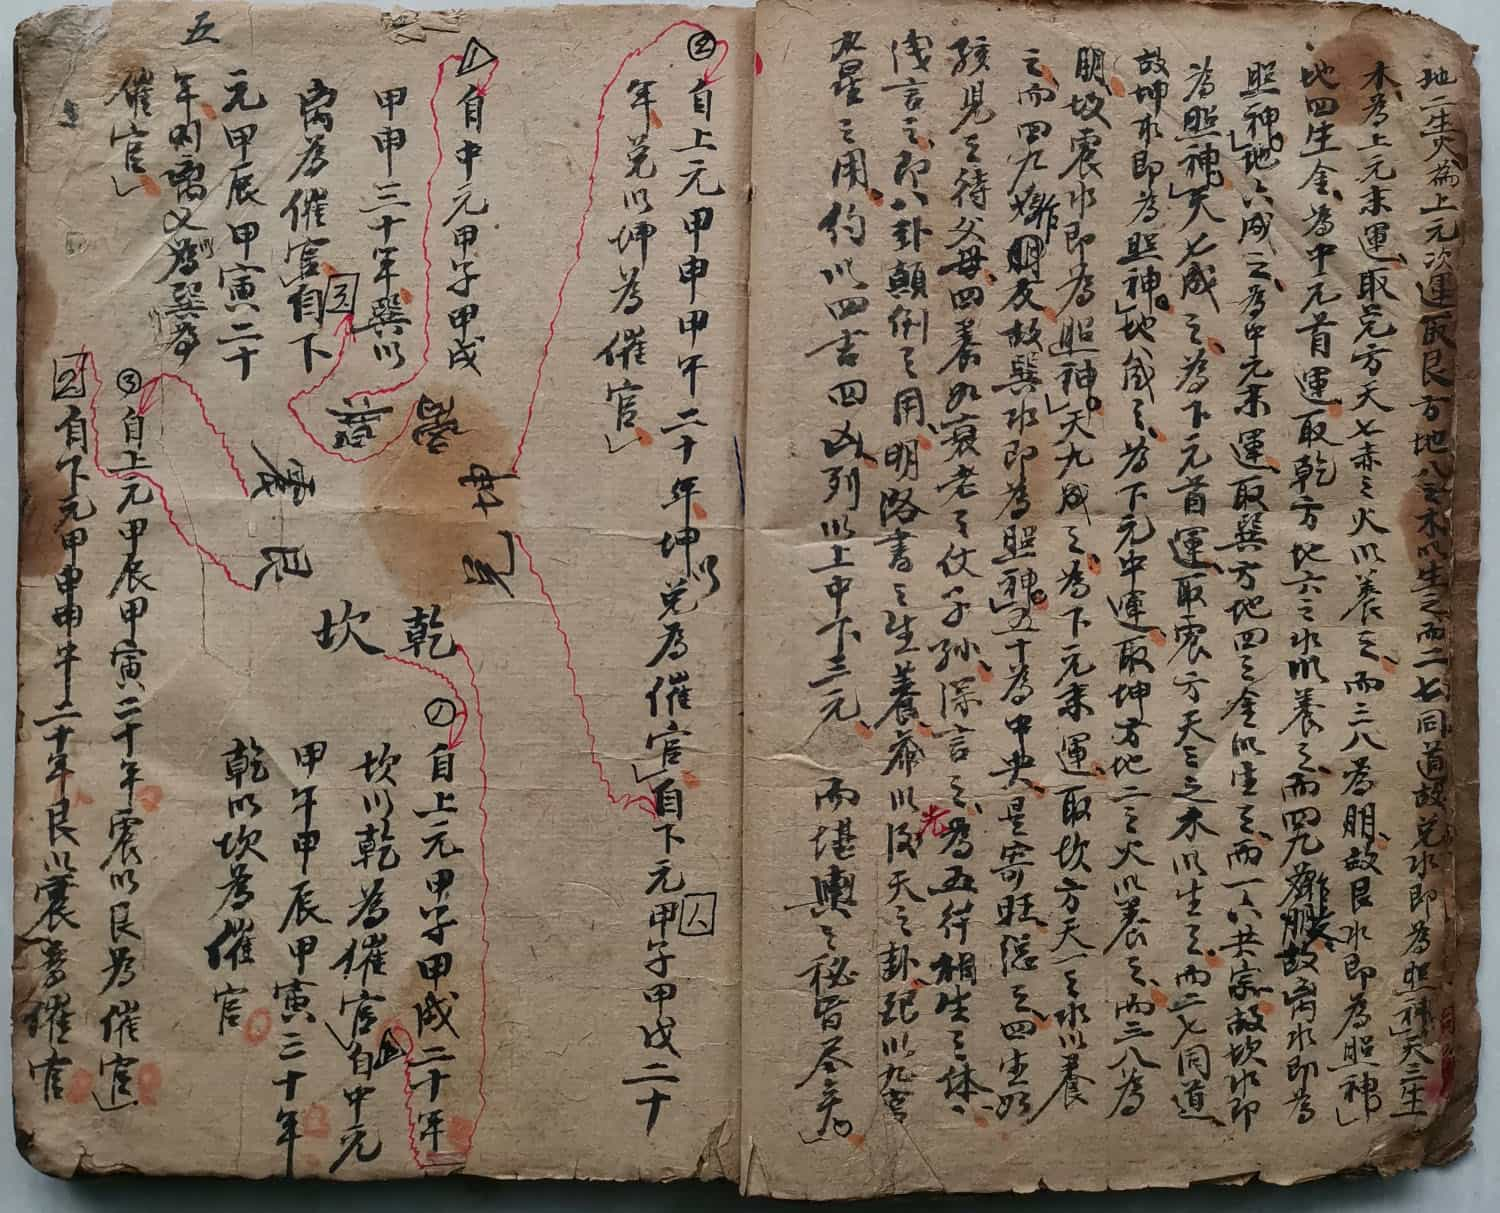 地二生火為上元次運取艮方地八之木以生之而二七同道故兌水即為照神」天三生
木為上元末運取兌方天七赤之火以養之而三八為朋故艮水即為照神」
地四生金為中元首運取乾方地六之水以養之而四九為朋故离水即為
照神」地六成之為中元末運取巽方地四之金以生之而一六共宗故坎水即
為照神」天七成之為下元首運取震方天三之木以生之而二七同道
故坤水即為照神」地八成之為下元中運取坤方地二之火以養之而三八為
朋故震水即為照神」天九成之為下元末運取坎方天一之水以養
之而四九作朋友故巽水即為照神」五十為中央是寄旺隱之四生如
孩児之待父母四養如衰老之仗子孫深言之為五行相生之体
浅言之即八卦顛倒之用明洛書之生養齐以後天之卦配以九宮
九星之用約以四吉四凶列以上中下三元 而堪輿之秘旨尽矣」
②自上元甲申甲午二十年坤以兌為催官」自下元甲子甲戌二十
年兌以坤為催官」
△自中元甲子甲戌
甲申三十年巽以
离為催官」自下
元甲辰甲寅二十
年則离又以巽為
催官」
五
离 巽 坤 兌 震 艮 坎 乾
①自上元甲子甲戌二十年
坎以乾為催官」自中元
甲午甲辰甲寅三十年
乾以坎為催官
③自上元甲辰甲寅二十年震以艮為催官」
自下元甲申甲午二十年艮以震為催官